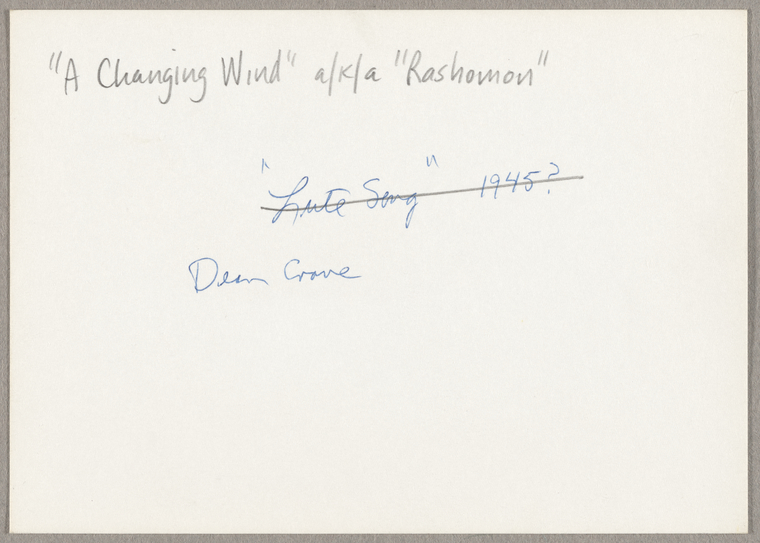 "A Changing Wind" a/k/a "Rashomon"
"Lute Song" 1945?
Dean Crane